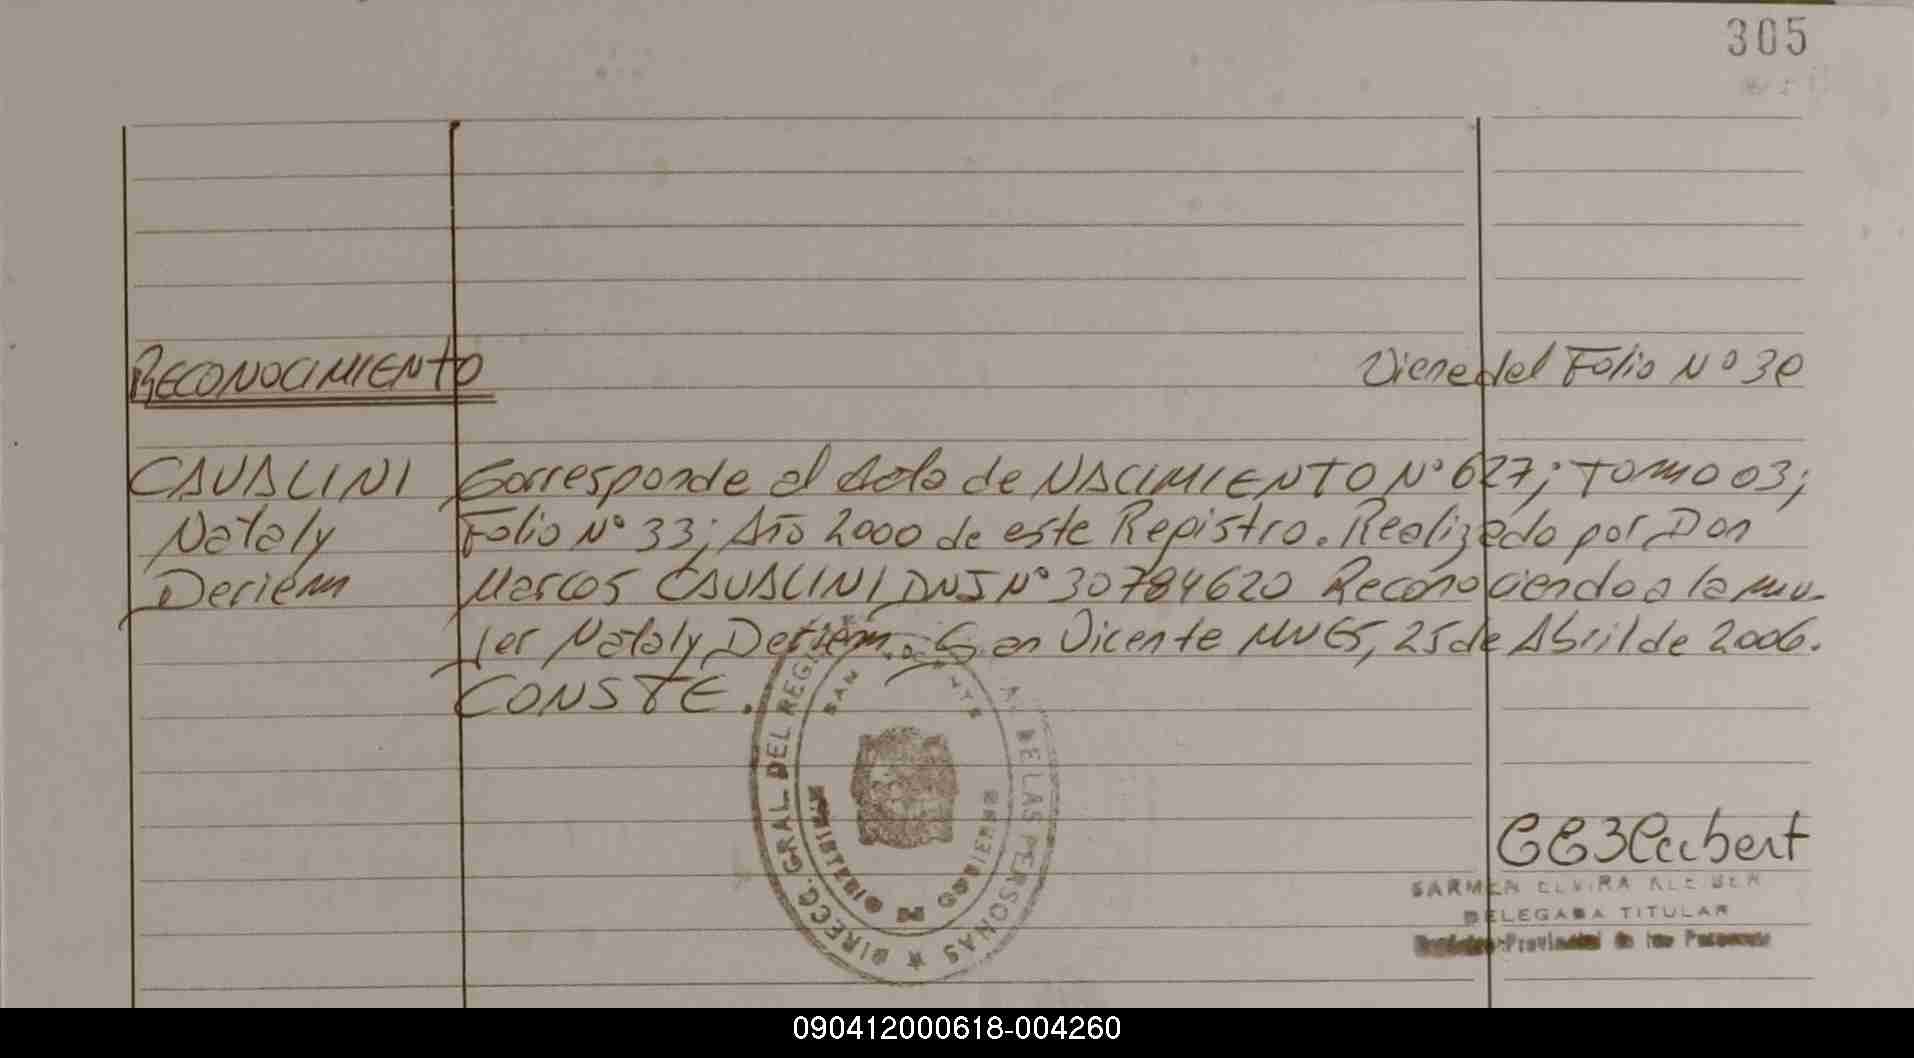 305
RECONOCIMIENTO
Viene del Folio Nº 30
CAVALINI Corresponde al Acta de NACIMIENTO Nº 627; TOMO 03;
Nataly Folio Nº 33; Año 2000 de este Registro. Realizado por Don
Deriem Marcos CAVALINI DNI Nº 30784620 Reconociendo a la mu-
jer Nataly Deriem. San Vicente MNES, 25 de Abril de 2006.
CONSTE.
DIRECC. GRAL. DEL REGI A. DE LAS PERSONAS
SAN NTE
MINISTERIO DE GOBIERNO
CARMEN ELVIRA KLEIBER
DELEGADA TITULAR
Provincial de las Personas
090412000618-004260